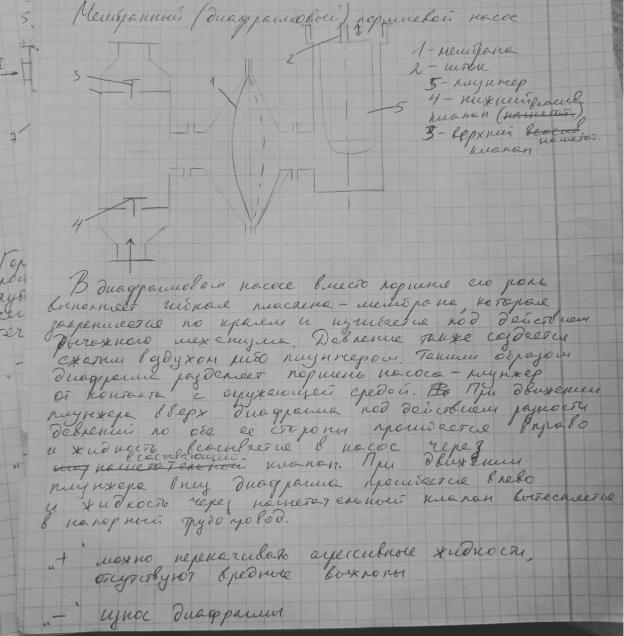 Мембранный (диафрагмовый) поршневой насос
1 - мембрана
2 - шток
5 - плунжер
4 - нижний всасыв.
клапан (нагнетат.)
3 - верхний всасыв
нагнетат.
клапан
3
1
2
5
4
7
В диафрагмовом насосе вместо поршня его роль
выполняет гибкая пластена - мембрана, которая
закрепляется по краям и изгибается под действием
рычажного механизма. Давление также создаётся
сжатым воздухом либо плунжером. Таким образом
диафрагма разделяет поршень насоса - плунжер
от контакта с окружающей средой. При движении
плунжера вверх диафрагма под действием разности
давлений по обе её стороны прогибается вправо
и жидкость всасывается в насос через
всасывающий
нагнетательной клапан. При движении
плунжера вниз диафрагма прогибается влево
и жидкость через нагнетательный клапан вытесняется
в напорный трубопровод.
„+“ можно перекачивать агрессивные жидкости,
отсутствуют вредные выхлопы
„—“ износ диафрагмы